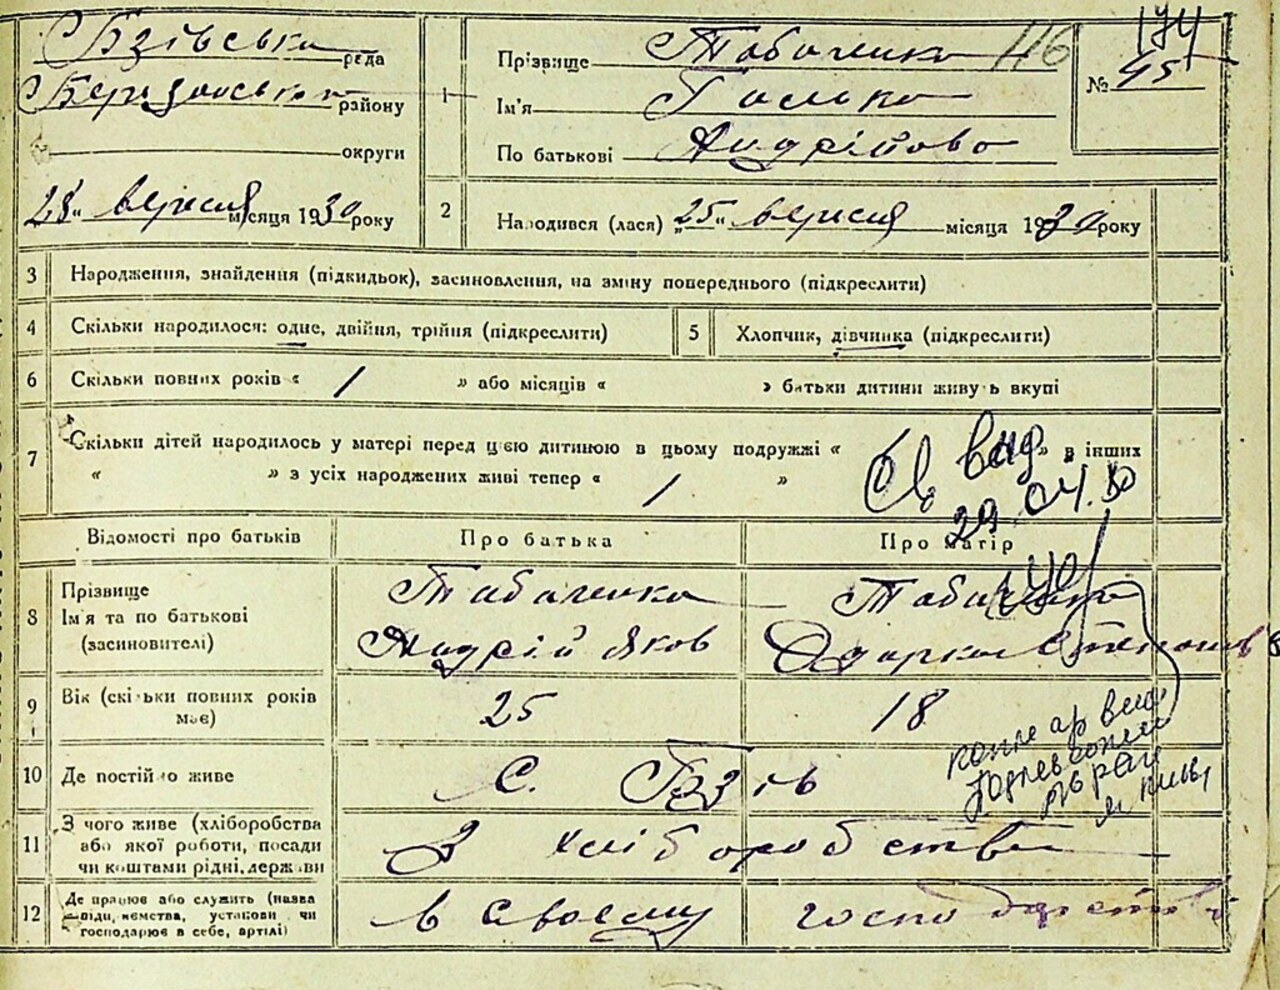 Бзівська рада
Березанська району
округи
28 „ вересня місяця 1930 року
1
Прізвище Табаченко
Ім'я Галька
По батькові Андріївова
116
174
№ 45
2 Народився (лася) „25" вересня місяця 1930 року
3 Народження, знайдення (підкидьок), засиновлення, на зміну попереднього (підкреслити)
4 Скільки народилося: одне, двійня, трійня (підкреслити)
5 Хлопчик, дівчинка (підкреслити)
6 Скільки повних років « 1 » або місяців « » батьки дитини живуть вкупі
7 Скільки дітей народилось у матері перед цією дитиною в цьому подружжі « » в інших
« » з усіх народжених живі тепер « 1 »
Св вид
29.04.80
Відомості про батьків Про батька Про матір
8 Прізвище
Ім'я та по батькові
(засиновителі)
Табаченко
Андрій Яков
Табаченко
Одарка Степанов
9 Вік (скільки повних років
має)
25 18
10 Де постійно живе с. Бзів
11 З чого живе (хліборобства
або якої роботи, посади
чи коштами рідні, держави
З хліборобства
12 Де працює або служить (назва
підприємства, установи чи
господарює в себе, артілі)
в своєму господарстві